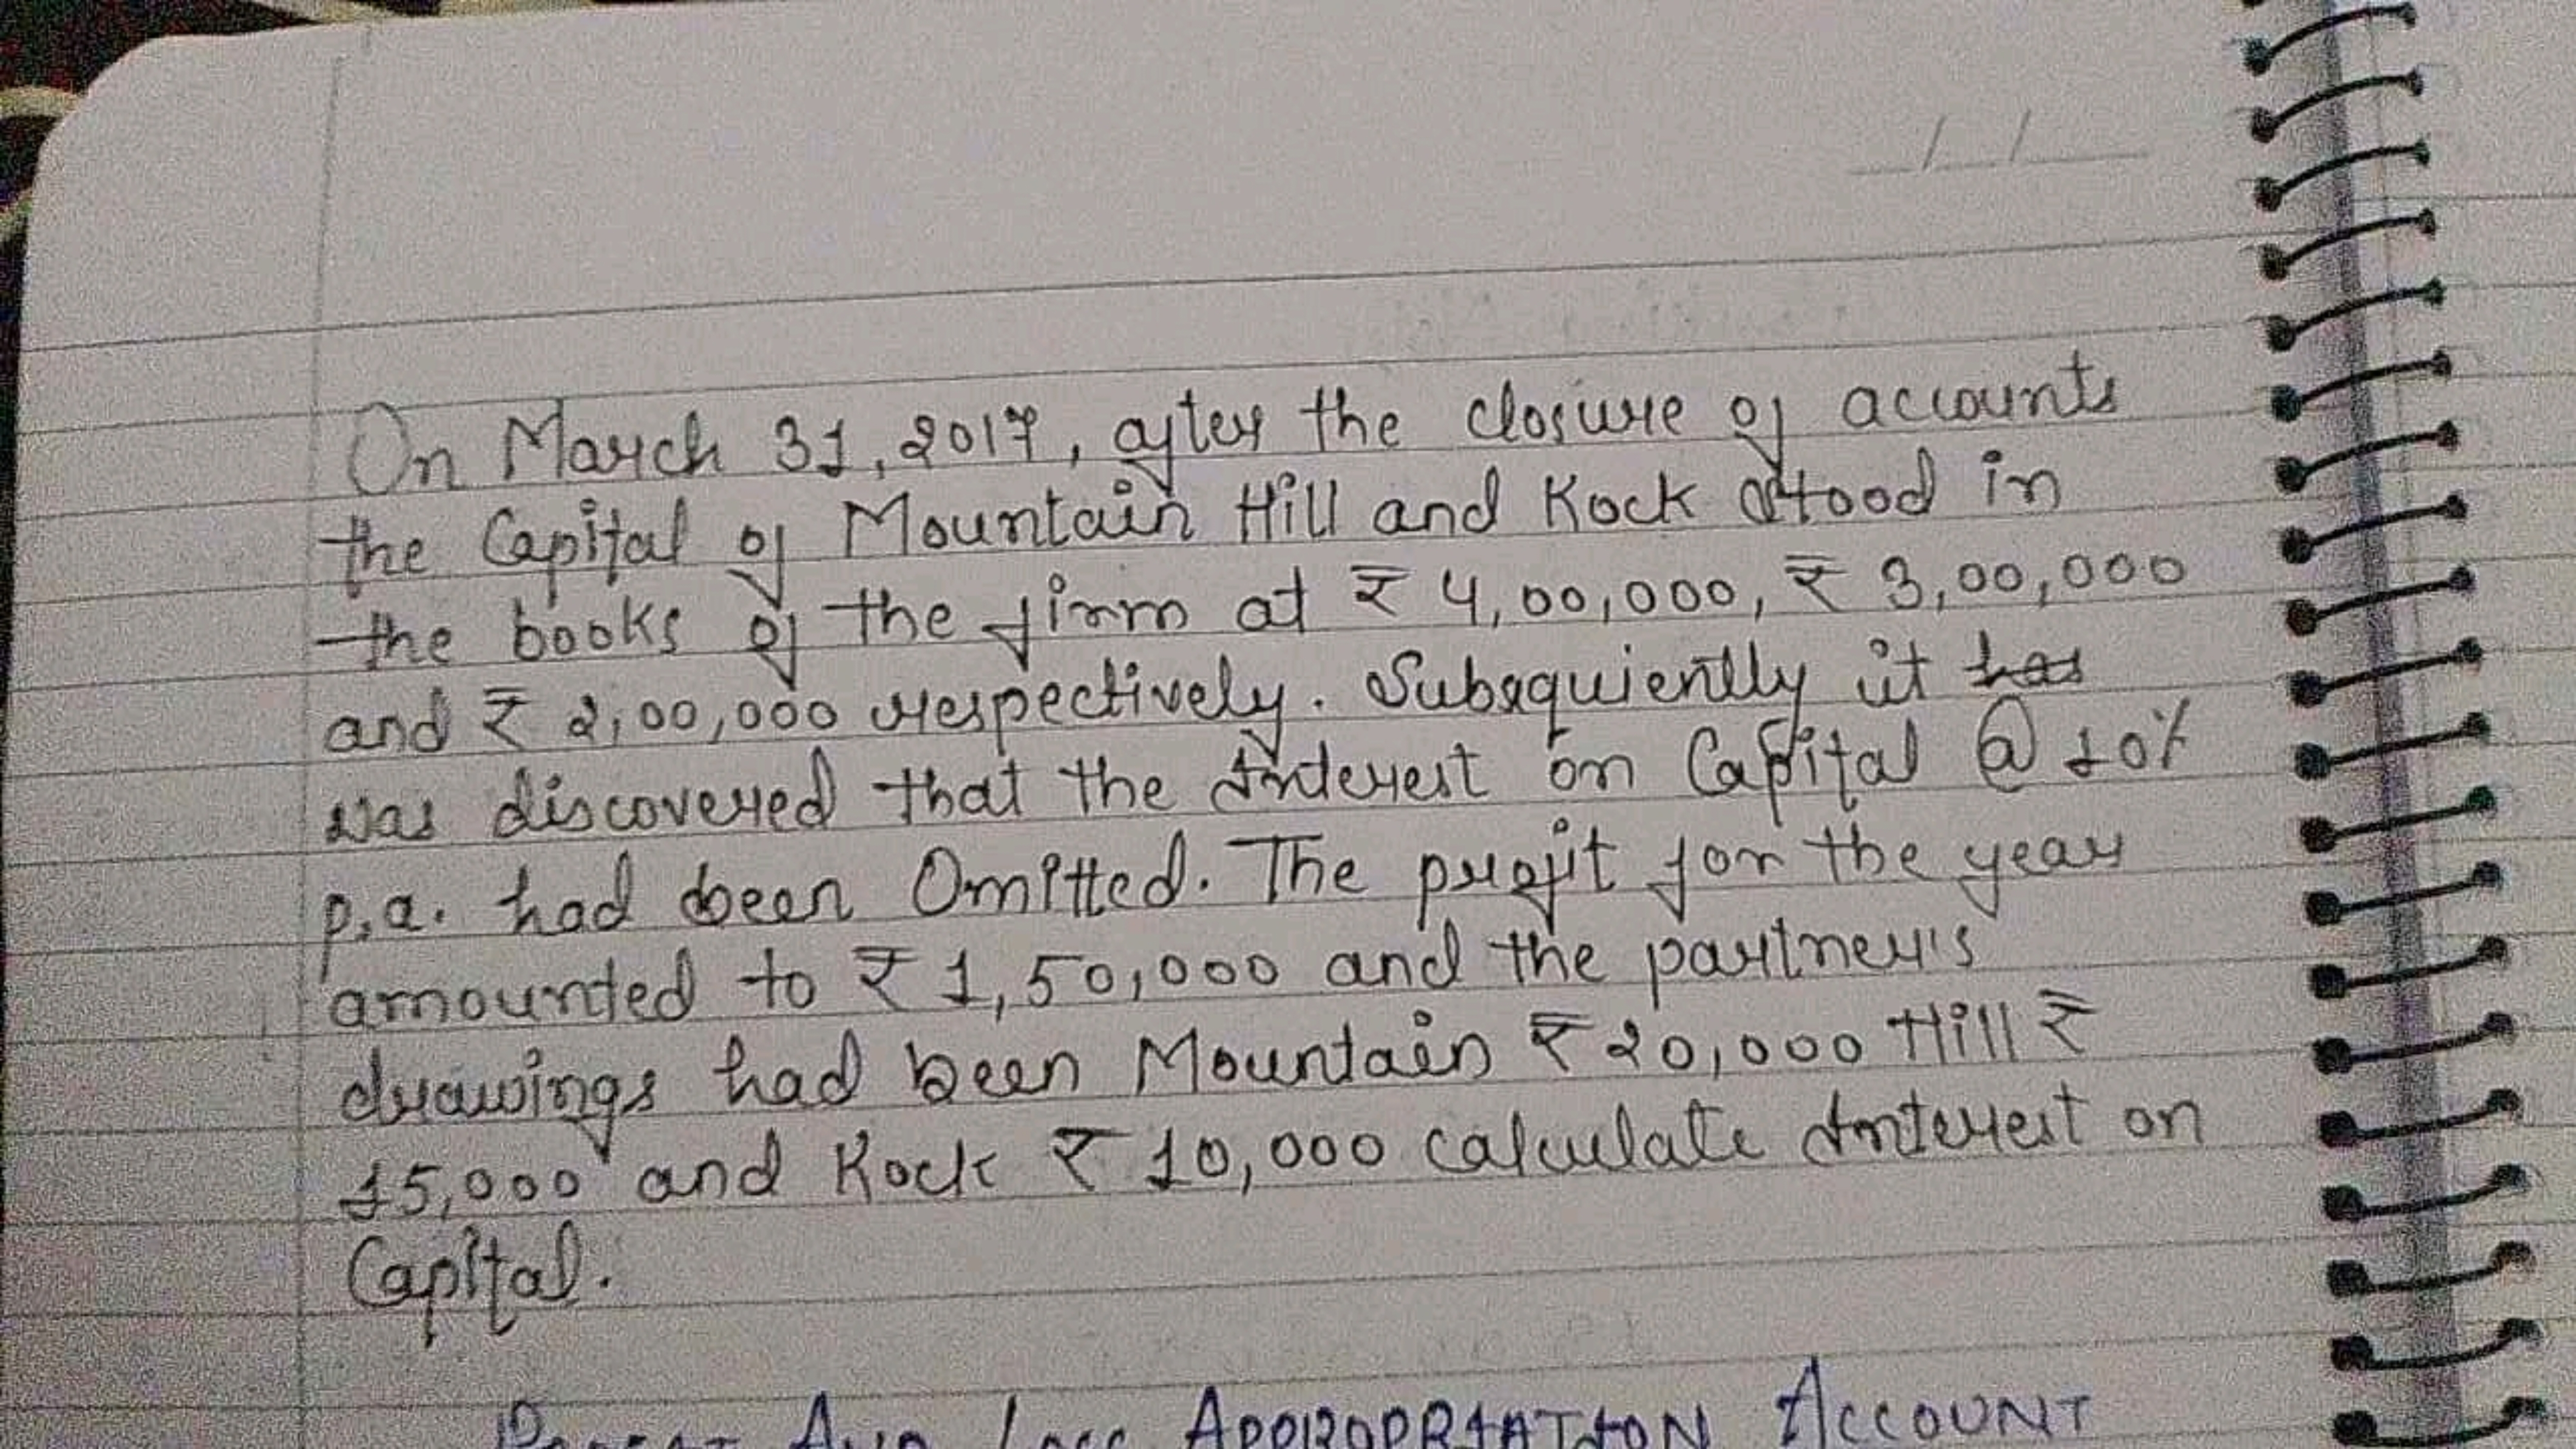 On March 31, 2017, after the closure of accounts
the Capital of Mountain Hill and Rock stood in
the books of the firm at ₹ 4,00,000, ₹ 3,00,000
and ₹ 2,00,000 respectively. Subsequiently it has
was discovered that the Interest on Capital @ 10%
p.a. had been Omitted. The profit for the year
amounted to ₹ 1,50,000 and the partner's
drawings had been Mountain ₹ 20,000 Hill ₹
15,000 and Rock ₹ 10,000 calculate Interest on
Capital.
PROFIT AND LOSS APPROPRIATION ACCOUNT